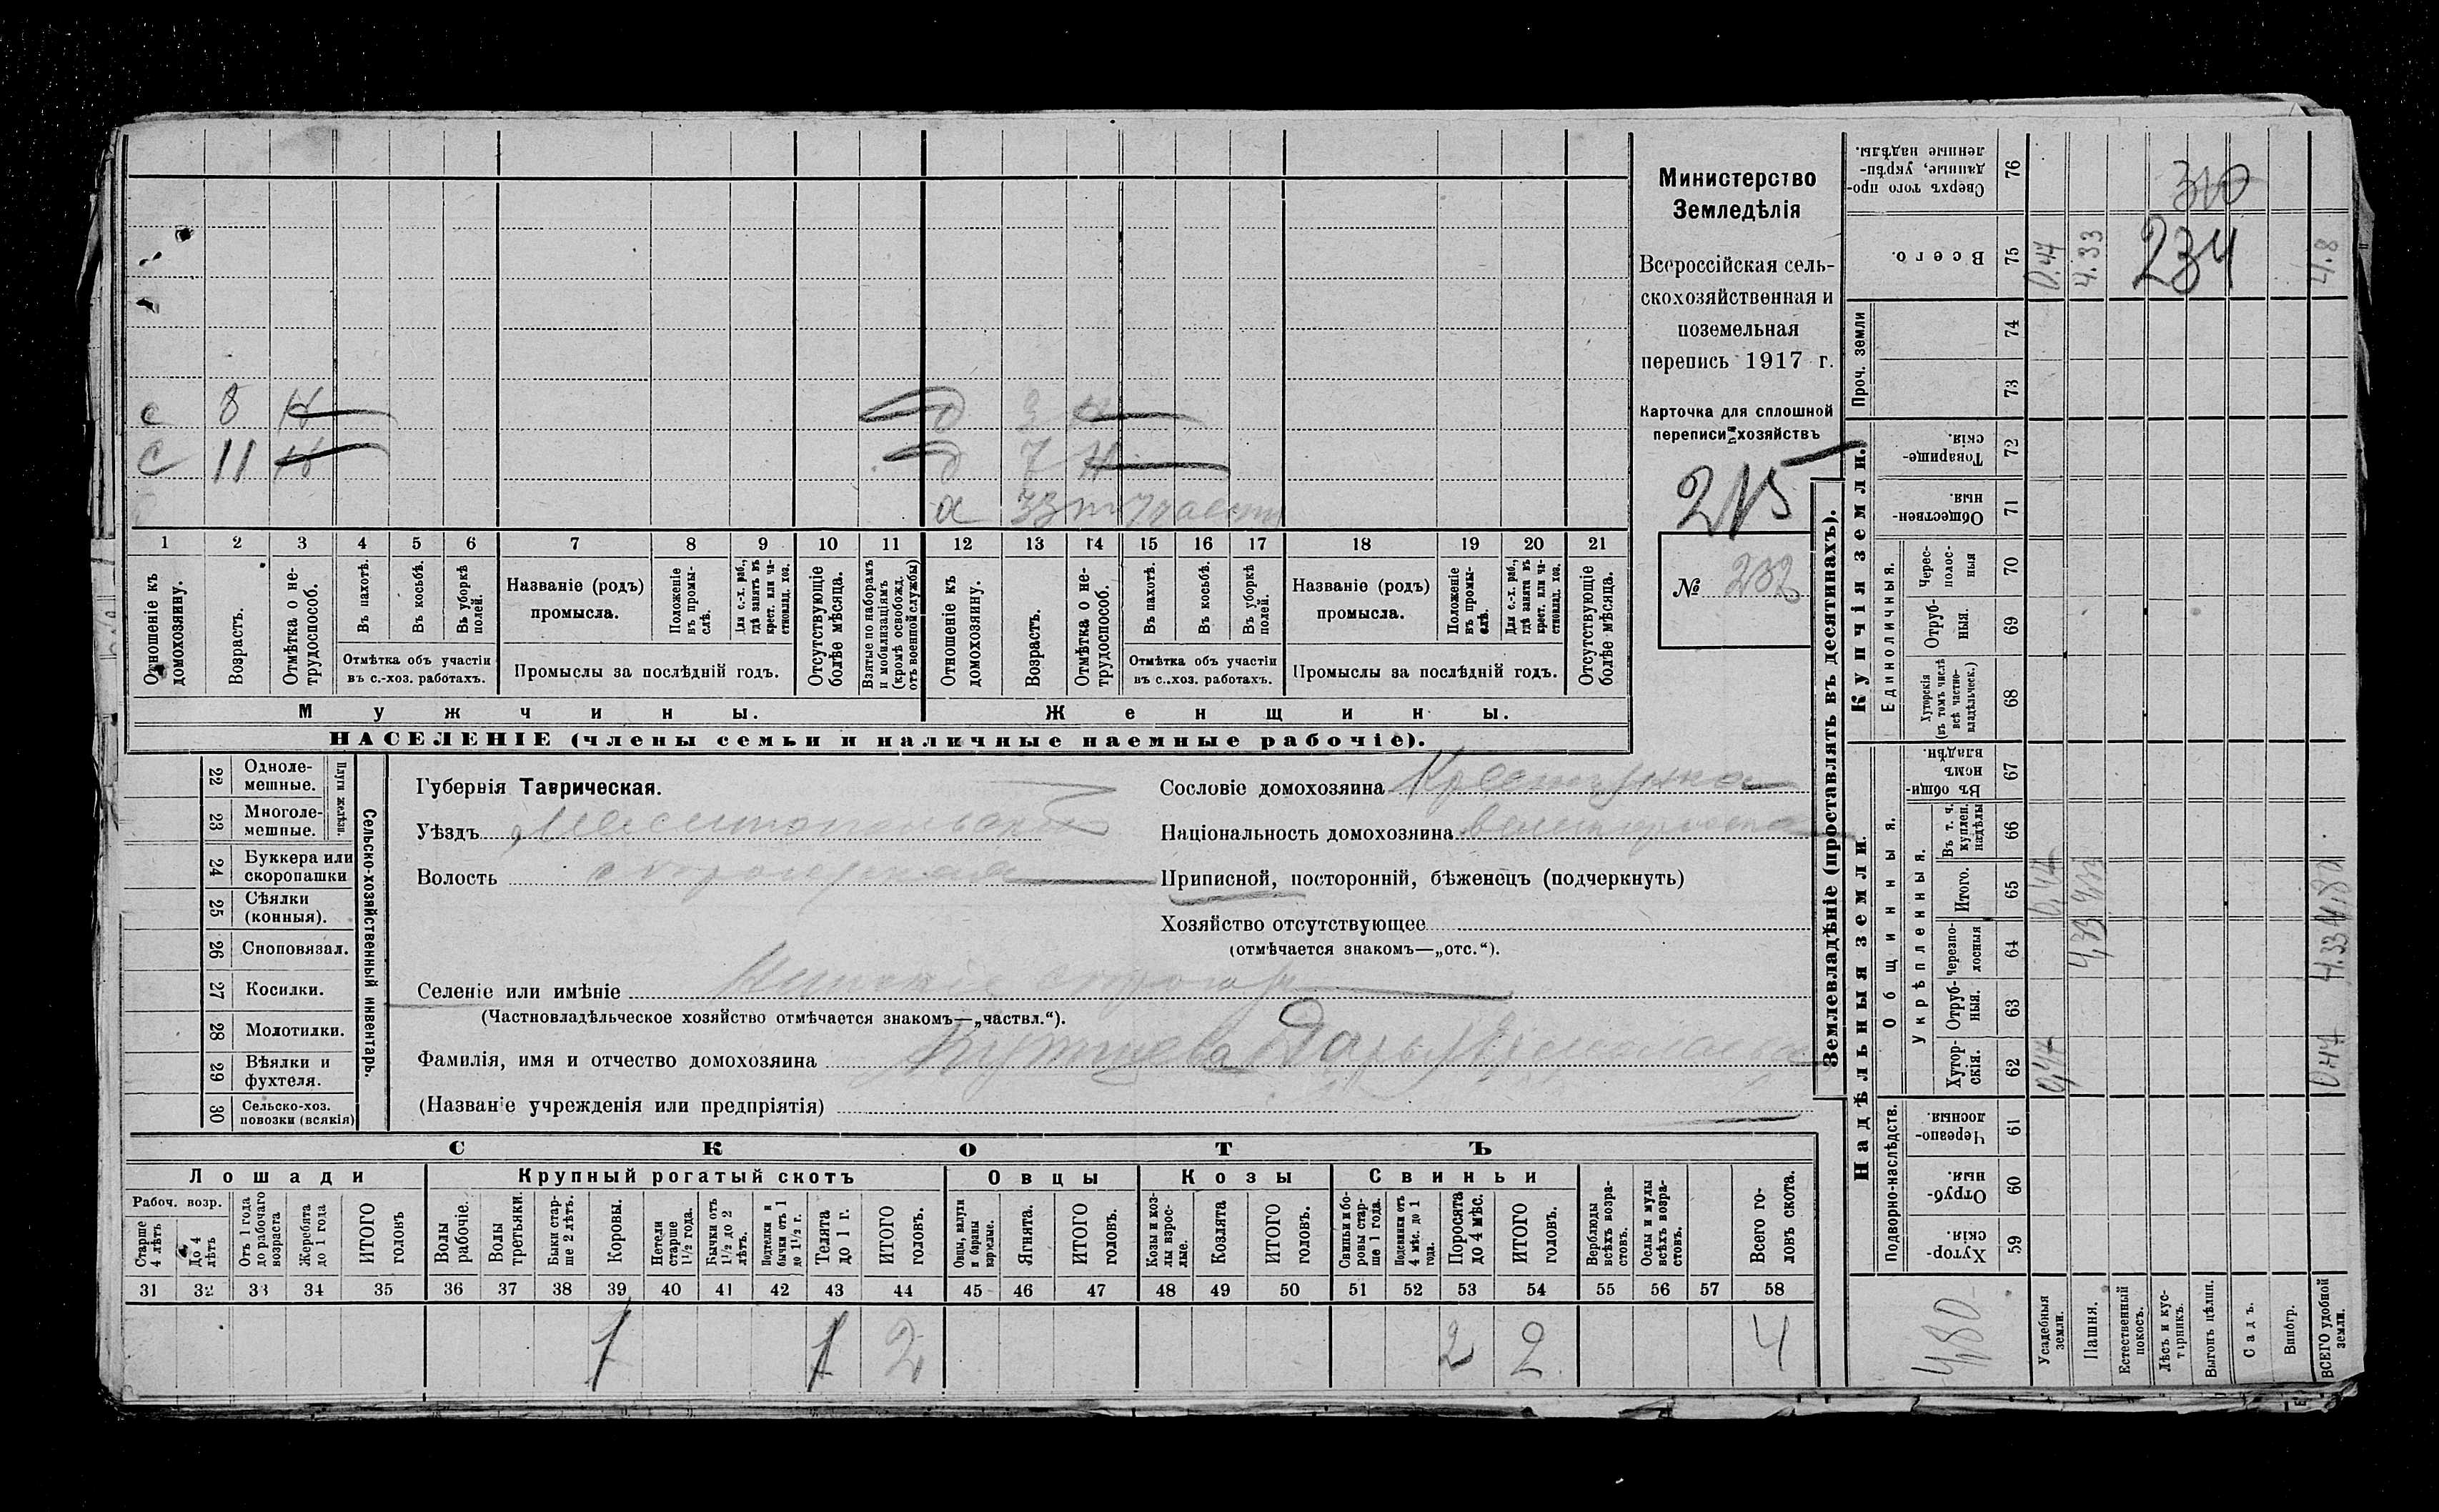 с 8 н д 3 н
с 11 н д 7 н
х 33
1 2 3 4 5 6 7 8 9 10 11 12 13 14 15 16 17 18 19 20 21
Отношеніе къ домохозяину.
Возрастъ.
Отмѣтка о не-
трудоспособ.
Въ пахотѣ.
Въ косьбѣ.
Въ уборкѣ полей.
Отмѣтка объ участіи
въ с.-хоз. работахъ.
Названіе (родъ)
промысла.
Положеніе въ промы-
слѣ.
Для с.-х. раб., гдѣ занятъ въ крест. или ча-
стновлад. хоз.
Промыслы за послѣдній годъ.
Отсутствующіе болѣе мѣсяца.
Взятые по наборамъ и мобилизаціямъ (кромѣ освобожд. отъ военной службы)
Отношеніе къ домохозяину.
Возрастъ.
Отмѣтка о не-
трудоспособ.
Въ пахотѣ.
Въ косьбѣ.
Въ уборкѣ полей.
Отмѣтка объ участіи
въ с..хоз. работахъ.
Названіе (родъ)
промысла.
Положеніе въ промы-
слѣ.
Для с.-х. раб., гдѣ занята въ крест. или ча-
стновлад. хоз.
Промыслы за послѣдній годъ.
Отсутствующіе болѣе мѣсяца.
Мужчины.
Женщины.
НАСЕЛЕНІЕ (члены семьи и наличные наемные рабочіе).
Министерство
Земледѣлія
Всероссійская сель-
скохозяйственная и
поземельная
перепись 1917 г.
Карточка для сплошной
переписи хозяйствъ
215
№ 232
22 Одноле-
мешные.
23 Многоле-
мешные.
Плуги желѣзн.
24 Буккера или
скоропашки
25 Сѣялки
(конныя).
26 Сноповязал.
27 Косилки.
28 Молотилки.
29 Вѣялки и
фухтеля.
30 Сельско-хоз.
повозки (всякія)
Сельско-хозяйственный инвентарь.
Губернія Таврическая.
Уѣздъ Мелитопольскій
Волость
Селеніе или имѣніе
(Частновладѣльческое хозяйство отмѣчается знакомъ—„частвл.“).
Фамилія, имя и отчество домохозяина Дарья
(Названіе учрежденія или предпріятія)
Сословіе домохозяина Крестьянка
Національность домохозяина
Приписной, посторонній, бѣженецъ (подчеркнуть)
Хозяйство отсутствующее
(отмѣчается знакомъ—„отс.“).
СКОТЪ
Лошади Крупный рогатый скотъ Овцы Козы Свиньи
Рабоч. возр.
Старше 4 лѣтъ
До 4 лѣтъ
Отъ 1 года до рабочаго возраста
Жеребята до 1 года
ИТОГО головъ
Волы рабочіе.
Волы третьяки.
Быки стар-
ше 2 лѣтъ.
Коровы.
Нетели старше 1½ года.
Бычки отъ 1½ до 2 лѣтъ.
Подтелки и бычки отъ 1 до 1½ г.
Телята до 1 г.
ИТОГО головъ.
Овцы, валухи и бараны взрослые.
Ягнята.
ИТОГО головъ.
Козы и коз-
лы взрос-
лые.
Козлята
ИТОГО головъ.
Свиньи и бо-
ровы стар-
ше 1 года.
Подсвинки отъ 4 мѣс. до 1 года.
Поросята до 4 мѣс.
ИТОГО головъ.
Верблюды всѣхъ возра-
стовъ.
Ослы и мулы всѣхъ возра-
стовъ.
Всего го-
ловъ скота.
31 32 33 34 35 36 37 38 39 40 41 42 43 44 45 46 47 48 49 50 51 52 53 54 55 56 57 58
1 1 2 2 2 4
Землевладѣніе (проставлять въ десятинахъ).
Надѣльныя земли.
Купчія земли.
Проч. земли
Подворно-наслѣдств.
Общинныя.
Укрѣпленныя.
Единоличныя.
Сверхъ того про-
данные, укрѣп-
ленные надѣлы. 76
Всего. 75
74
73
Товарище-
скія. 72
Обществен-
ныя. 71
Черес-
полос-
ныя 70
Отруб-
ныя. 69
Хуторскія (въ томъ числѣ всѣ частно-
владѣльческ.) 68
Въ общи-
номъ владѣн. 67
Въ т. ч. куплен. надѣлы 66
Итого. 65
Черезпо-
лосныя 64
Отруб-
ныя. 63
Хутор-
скія. 62
Черезпо-
лосныя 61
Отруб-
ныя. 60
Хутор-
скія 59
Усадебныя земли.
Пашня.
Естественный покосъ.
Лѣсъ и кус-
тарникъ.
Выгонъ цѣлин.
Садъ.
Виногр.
ВСЕГО удобной земли.
310
234
0.47 4.33 4.8
0,47 4,33
0,47 4.33 4.80
4,80